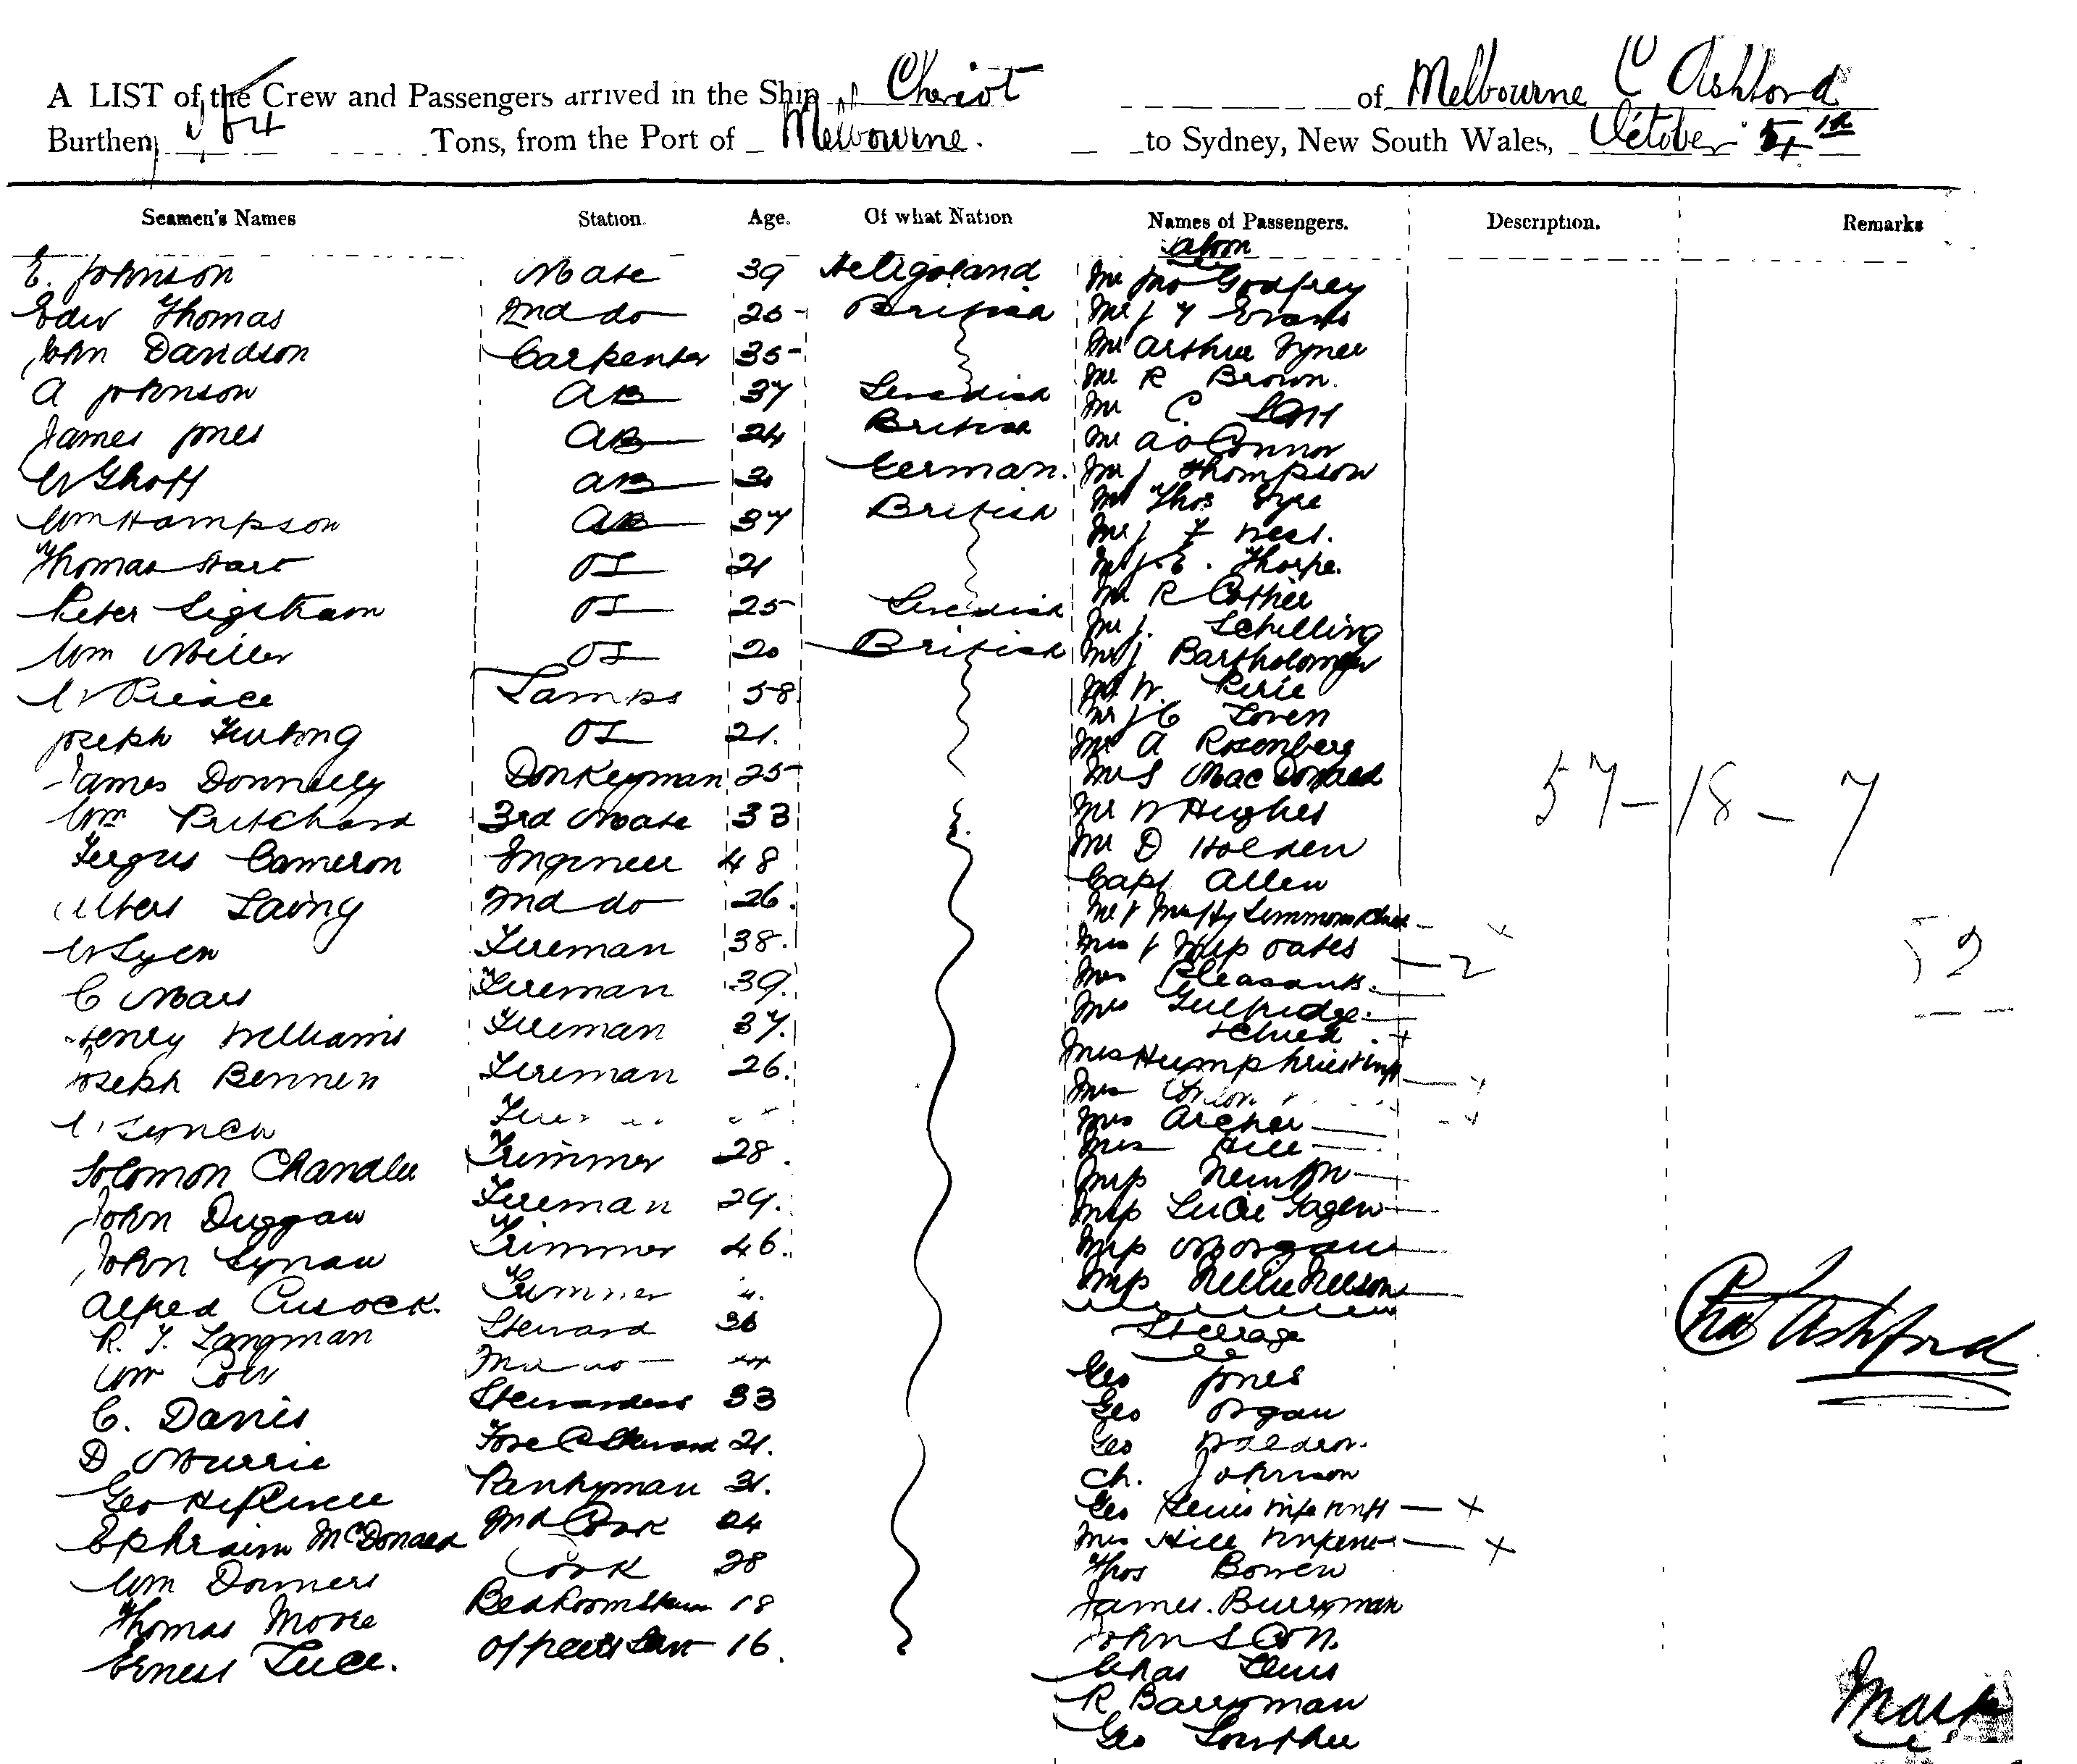 A LIST of the Crew and Passengers arrived in the Ship Cheviot of Melbourne C Ashford
Burthen, Tons, from the Port of Melbourne. to Sydney, New South Wales, October
Seamen's Names Station Age. Of what Nation Names of Passengers. Description. Remarks
Saloon
E. Johnson Mate 39 Heligoland Mr Jno Godfrey
Edw Thomas 2nd do 25 British Mr J Y Evans
John Davidson Carpenter 35 Mr Arthur Vyner
A Johnson AB 37 Swedish Mr R Brown.
Mr C.
James Jones AB 24 British Mr A O Connor
W Ghoff AB German. Mr J Thompson
Mr Thos Syre
Wm Hampson AB 37 British Mr J F West.
Thomas Hart OS 21 Mr J. E. Thorpe.
Peter Sigstrom OS 25 Swedish Mr R Cother
Mr J. Schilling
Wm Miller OS 20 British Mr J Bartholomew
W Pearce Lamps 58 Mr W. Pirie
Mr J C Loven
Joseph Furlong OS 21. Mr A Rosenberg
James Donnelly Donkeyman 25 Mr S MacDonald
Wm Pritchard 3rd Mate 33 Mr W Hughes
57-18-7
Fergus Cameron Engineer 48 Mr D Holden
Capt Allen
Albert Laing 2nd do 26. Mr & Mrs Hy Simmons
W Lyen Fireman 38. Mrs & Miss Oates 2 52
C Mars Fireman 39. Mrs Pleasants.
Mrs Gutheridge
& Child +
Henry Williams Fireman 37. Mrs Humphries &
Joseph Bennen Fireman 26. Mrs
Lynch Mrs Archer
Solomon Chandler Trimmer 28. Mrs Hill
Miss Newton
John Duggan Fireman 29. Miss Lucie Gagen
John Lynan Trimmer 46. Miss Morgan
Alfred Cusock. Trimmer Miss Nellie Nelson
R. J. Langman Steward 36 Steerage
Chas Ashford
Wm Geo Jones
C. Davis Stewardess 33 Geo Organ
D Murrie Fore C Steward 21. Geo Waldron.
Geo Pantryman 31. Ch. Johnson
Geo Lewis wife & inft +
Ephraim McDonald 2nd Cook 24 Mrs Hill & infant +
Wm Downers Cook 28 Thos Bowen
Thomas Moore Bedroom Stew 18 James. Burryman
Ernest Luce. Officers Serv 16. John
Chas Lewis
R Barryman
Geo Lowther
Mark